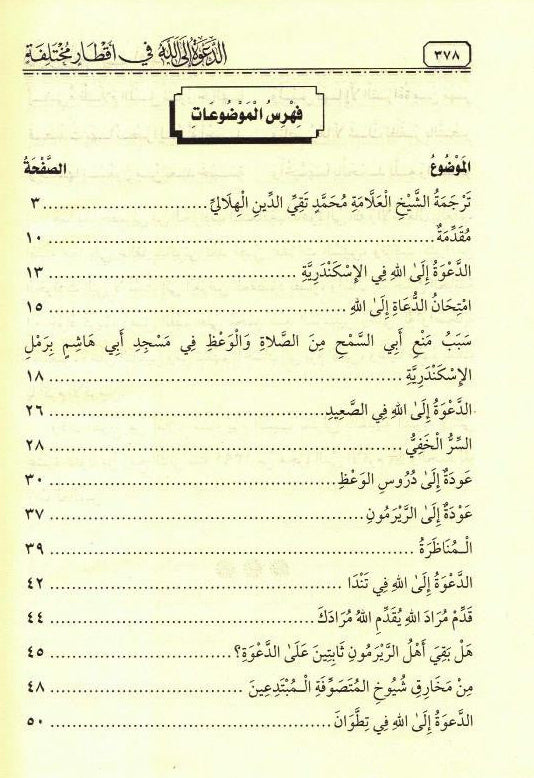 ٣٧٨ الدَّعْوَةُ إِلَى اللَّهِ فِي أَقْطَارٍ مُخْتَلِفَةٍ
فِهْرِسُ الْمَوْضُوعَاتِ
الْمَوْضُوعُ الصَّفْحَةُ
تَرْجَمَةُ الشَّيْخِ العَلَّامَةِ مُحَمَّدٍ تَقِيِّ الدِّينِ الْهِلَالِيِّ ........ ٣
مُقَدِّمَةٌ ........ ١٠
الدَّعْوَةُ إِلَى اللهِ فِي الإِسْكَنْدَرِيَّةِ ........ ١٣
امْتِحَانُ الدُّعَاةِ إِلَى اللهِ ........ ١٥
سَبَبُ مَنْعِ أَبِي السَّمْحِ مِنَ الصَّلَاةِ وَالْوَعْظِ فِي مَسْجِدِ أَبِي هَاشِمٍ بِرَمْلِ
الإِسْكَنْدَرِيَّةِ ........ ١٨
الدَّعْوَةُ إِلَى اللهِ فِي الصَّعِيدِ ........ ٢٦
السِّرُّ الْخَفِيُّ ........ ٢٨
عَودَةٌ إِلَى دُرُوسِ الوَعْظِ ........ ٣٠
عَوْدَةٌ إِلَى الرَّيْرَمُونِ ........ ٣٧
الْـمُنَاظَرَةُ ........ ٣٩
الدَّعْوَةُ إِلَى اللهِ فِي تَنْدَا ........ ٤٢
قَدِّمْ مُرَادَ اللهِ يُقَدِّمِ اللهُ مُرَادَكَ ........ ٤٤
هَلْ بَقِيَ أَهْلُ الرَّيْرَمُونِ ثَابِتِينَ عَلَى الدَّعْوَةِ؟ ........ ٤٥
مِنْ مَخَارِقِ شُيُوخِ المُتَصَوِّفَةِ الْـمُبْتَدِعِينَ ........ ٤٨
الدَّعْوَةُ إِلَى اللهِ فِي تِطْوَانَ ........ ٥٠